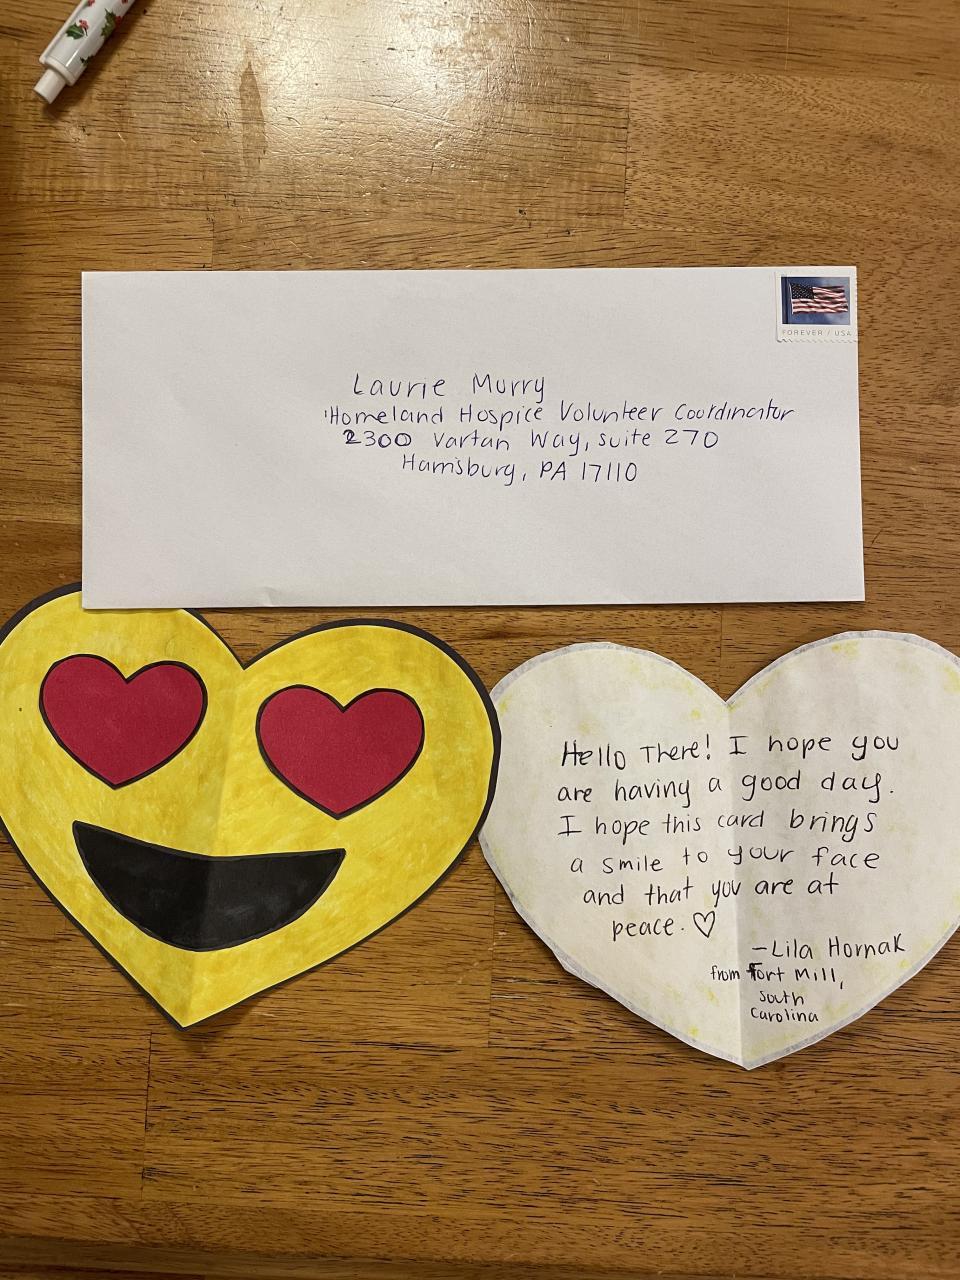 FOREVER / USA
Laurie Murry
Homeland Hospice Volunteer Coordinator
2300 Vartan Way, suite 270
Harrisburg, PA 17110
Hello There! I hope you
are having a good day.
I hope this card brings
a smile to your face
and that you are at
peace. ♡
-Lila Hornak
from Fort Mill,
South
Carolina